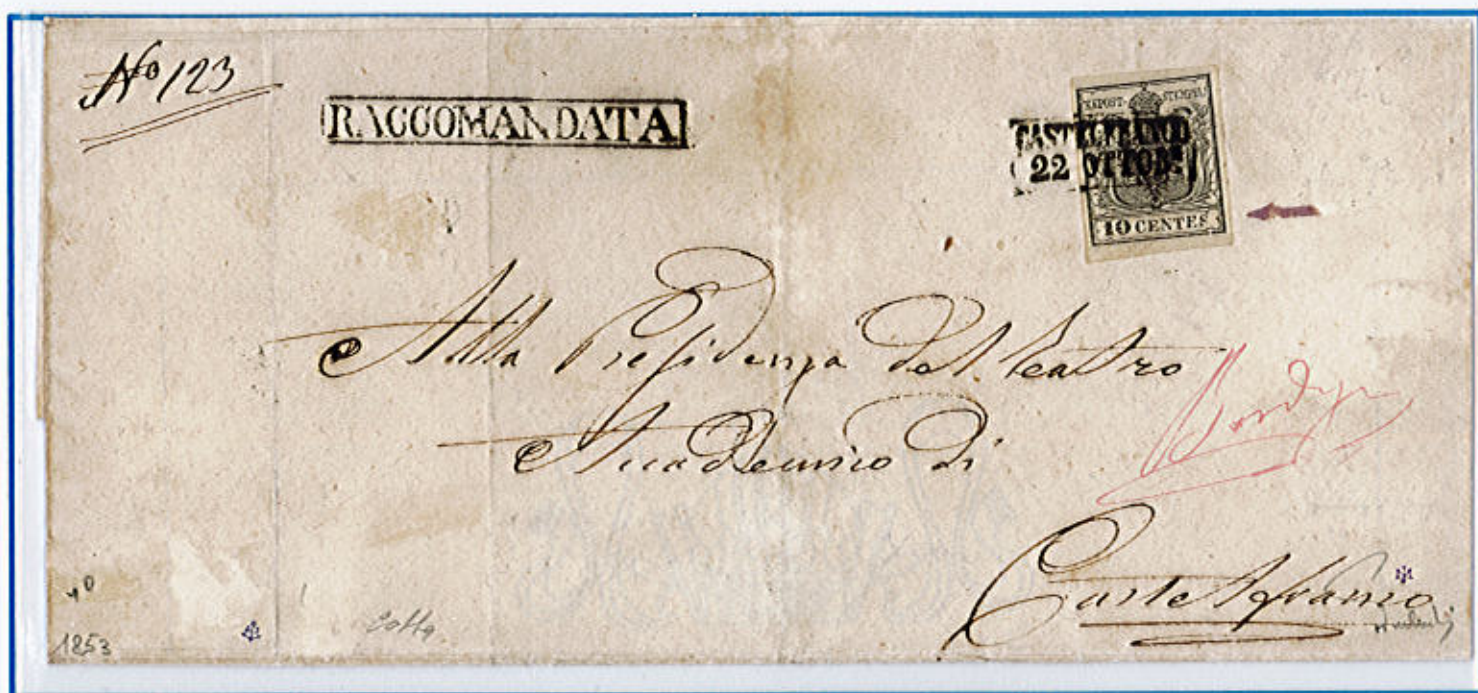 No 123
RACCOMANDATA
K.K.POST-STEMPEL
CASTELFRANCO
22 OTTOBE
10 CENTES
Alla Presidenza del Teatro
Accademico di
Castelfranco
1853